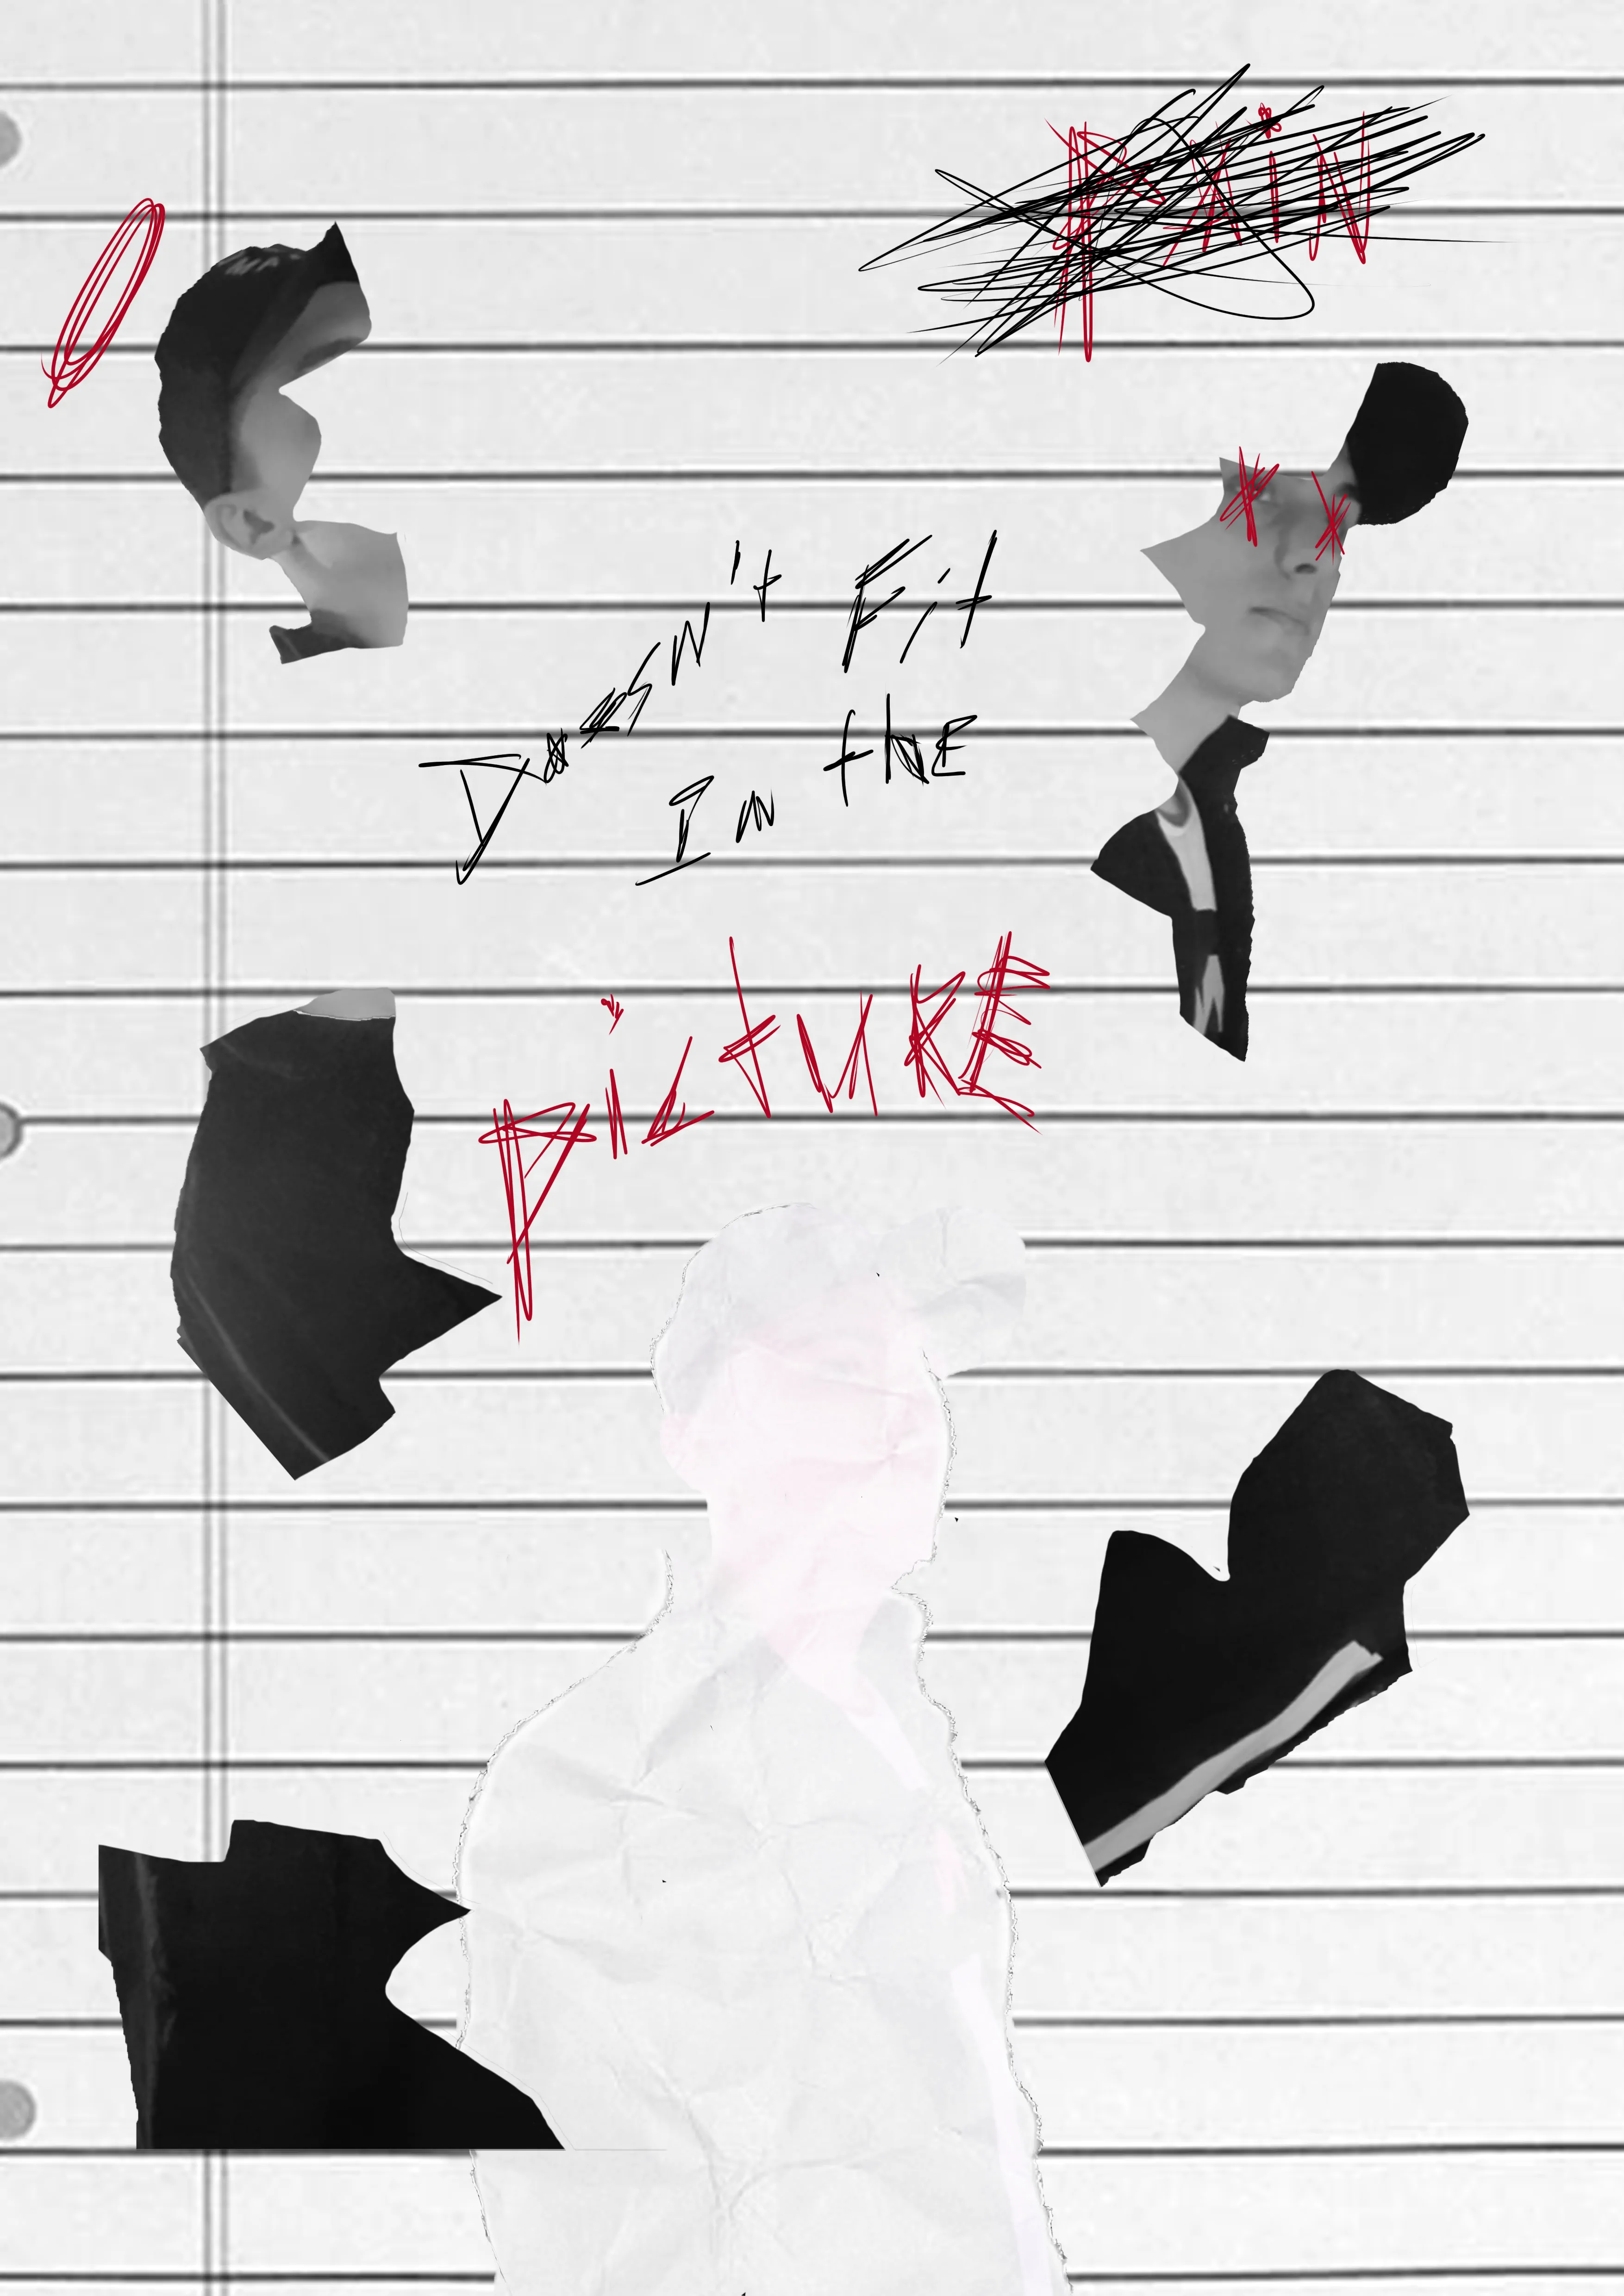 PAiN
Doesn't Fit
In the
PicturE